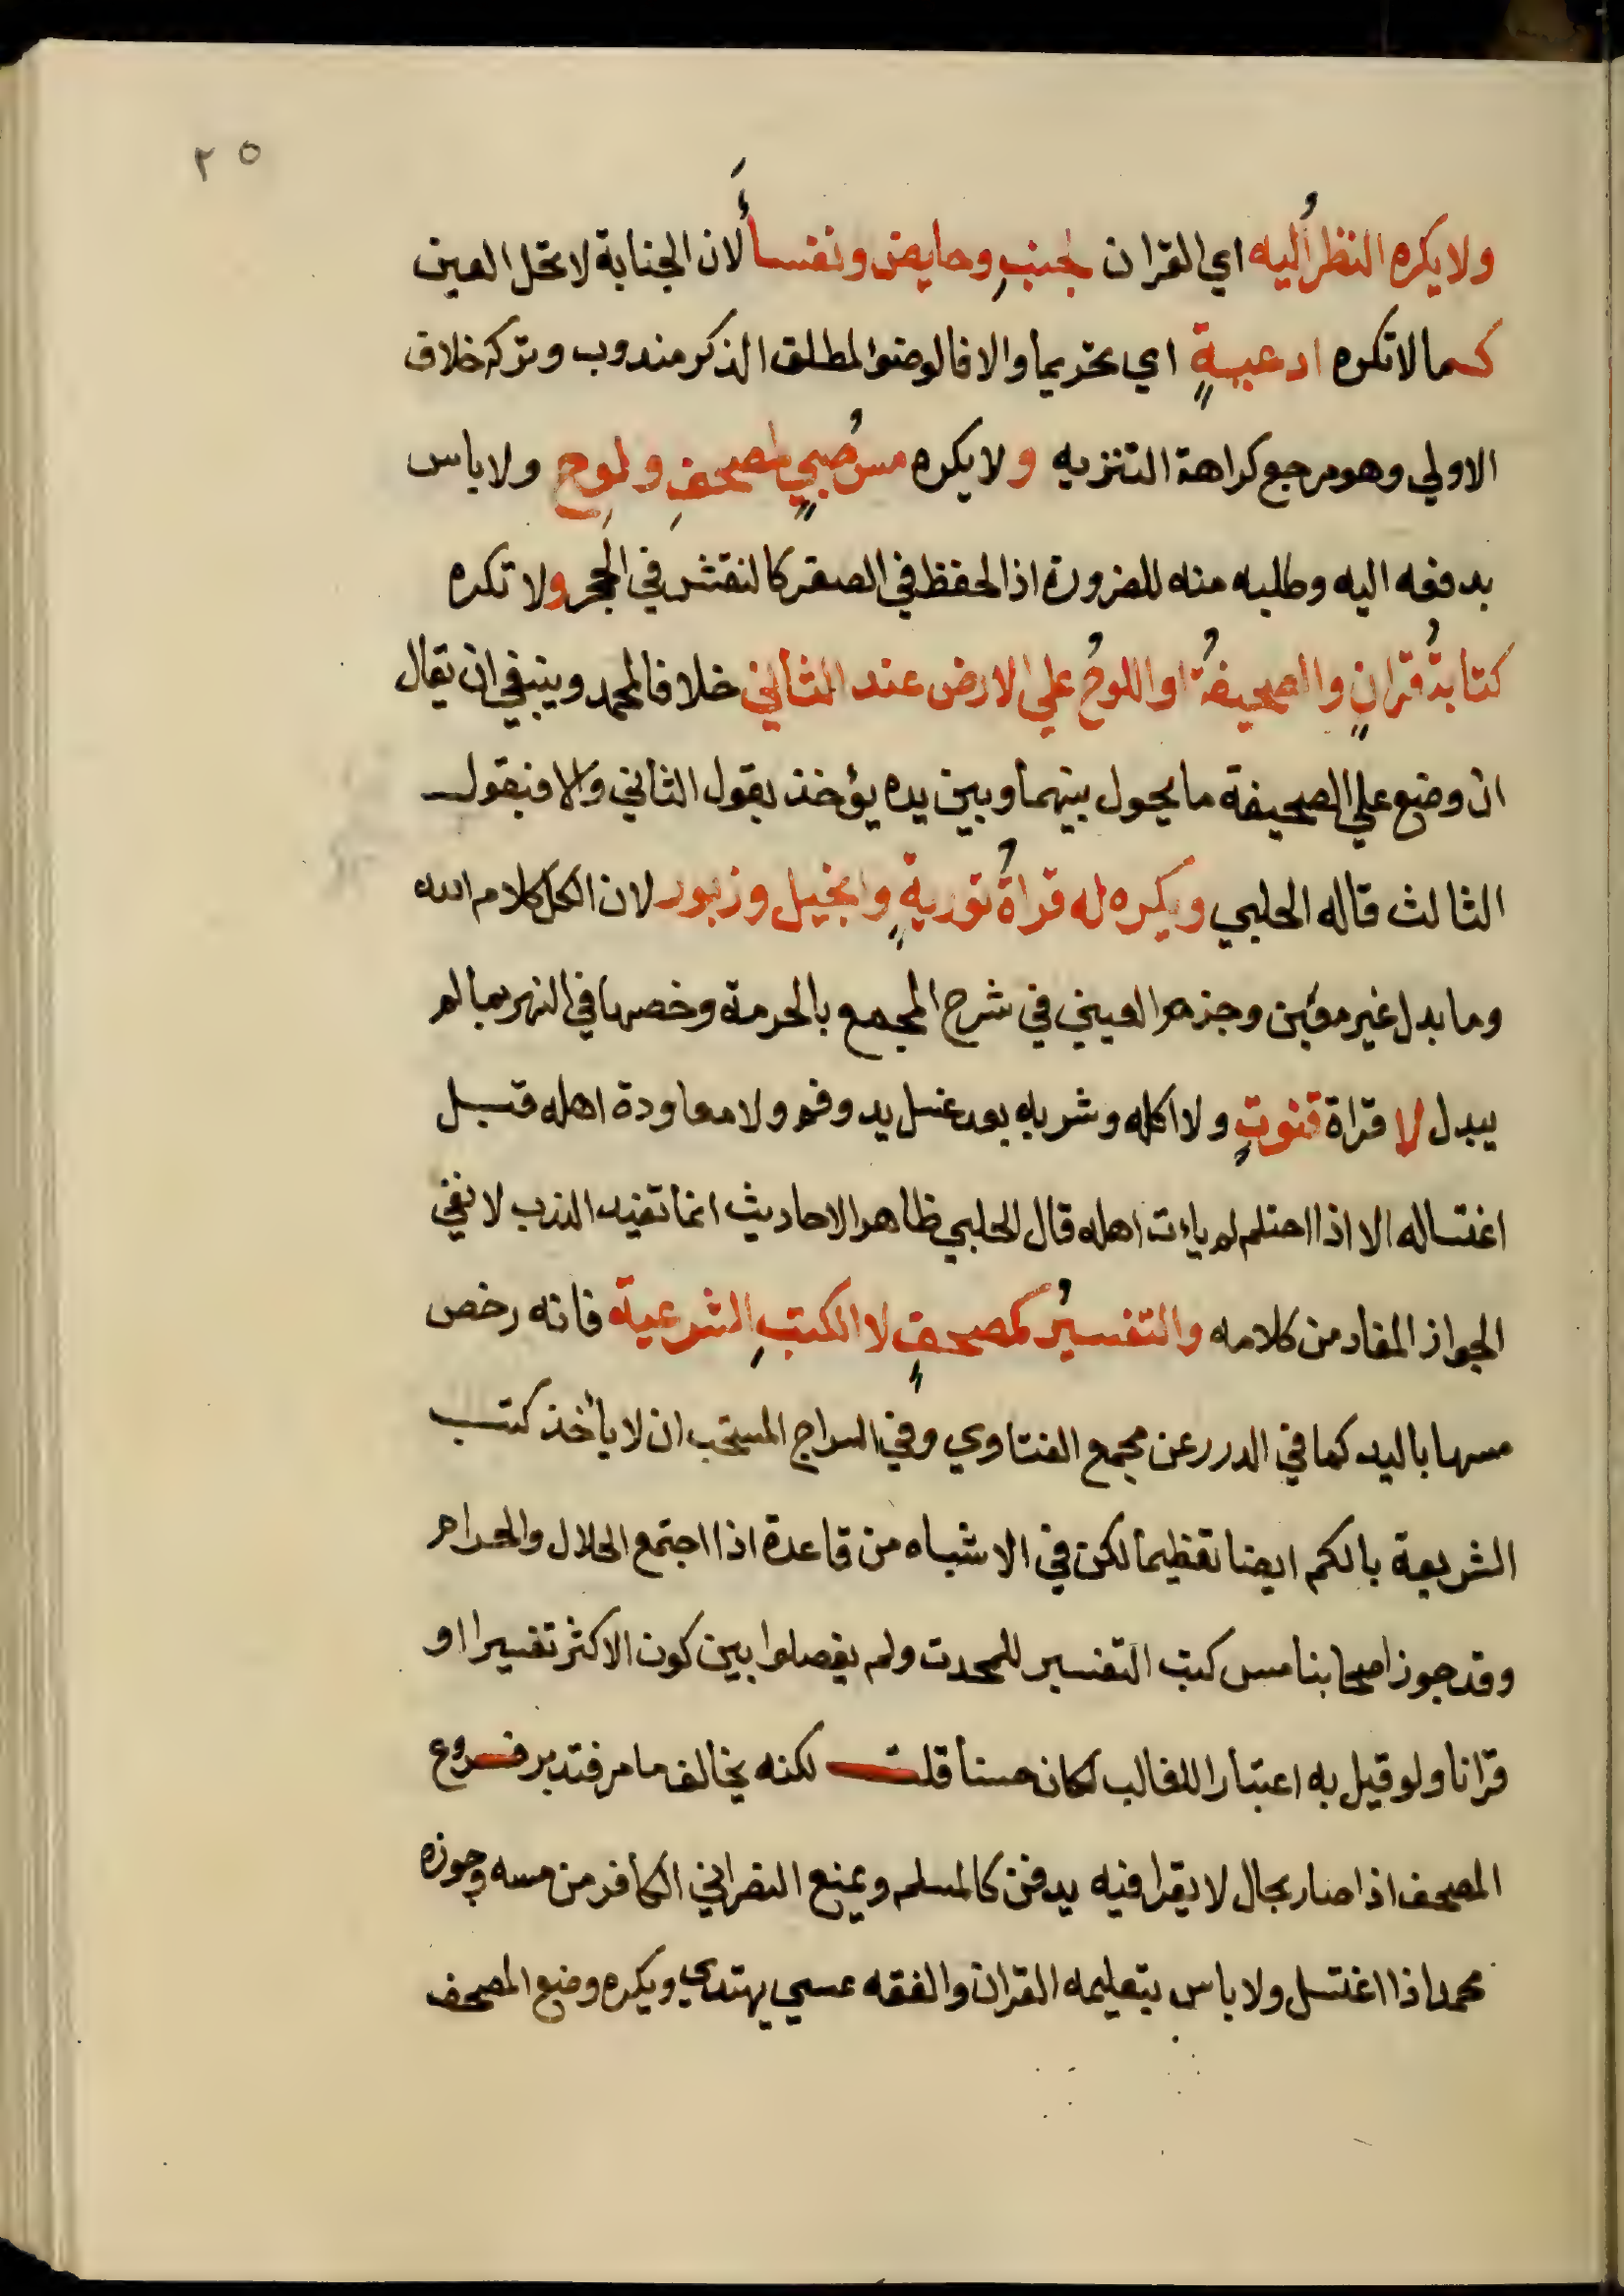 ٢٥
ولا يكره النظرُ اليه اي القران لجنبٍ وحايض ونفسأَ لان الجنابة لا تحل العين
كما لا تكره ادعيةٍ اي تحريما والا فالوضوا لمطلق الذكر مندوب وتركه خلاف
الاولي وهو مرجع كراهة التنزيه ولا يكره مسُ صبيٍ لمصحفِ ولوحِ ولا باس
بدفعه اليه وطلبه منه للضرورة اذ الحفظ في الصغر كالنقش في الحجر ولا تكره
كتابةُ قرانٍ والصحيفةُ او اللوحُ علي الارض عند الثاني خلافا لمحمد وينبغي ان يقال
ان وضع علي الصحيفة ما يحول بينهما وبين يده يؤخذ بقول الثاني والا فبقول
الثالث قاله الحلبي ويكره له قراةُ توريةٍ وانجيل وزبور لان الكل كلام الله
وما بدل غير معين وجزم العيني في شرح المجمع بالحرمة وخصها في النهر بما لم
يبدل لا قراة قنوتٍ ولا اكله وشربه بعد غسل يد وفم ولا معاودة اهله قبل
اغتساله الا اذا احتلم لم يات اهله قال الحلبي ظاهر الاحاديث انما تفيد الندب لا نفي
الجواز المفاد من كلامه والتفسيرُ كمصحفٍ لا الكتبِ الشرعية فانه رخص
مسها باليد كما في الدرر عن مجمع الفتاوي وفي السراج المستحب ان لا يأخذ كتب
الشريعة بالكم ايضا تعظيما لكن في الاشباه من قاعدة اذا اجتمع الحلال والحرام
وقد جوز اصحابنا مس كتب التفسير للمحدث ولم يفصلوا بين كون الاكثر تفسيرا او
قرانا ولو قيل به اعتبارا للغالب لكان حسنا قلت لكنه يخالف ما مر فتدبر فروع
المصحف اذا صار بحال لا يقرا فيه يدفن كالمسلم ويمنع النصراني الكافر من مسه وجوزه
محمد اذا اغتسل ولا باس بتعليمه القران والفقه عسي يهتدي ويكره وضع المصحف